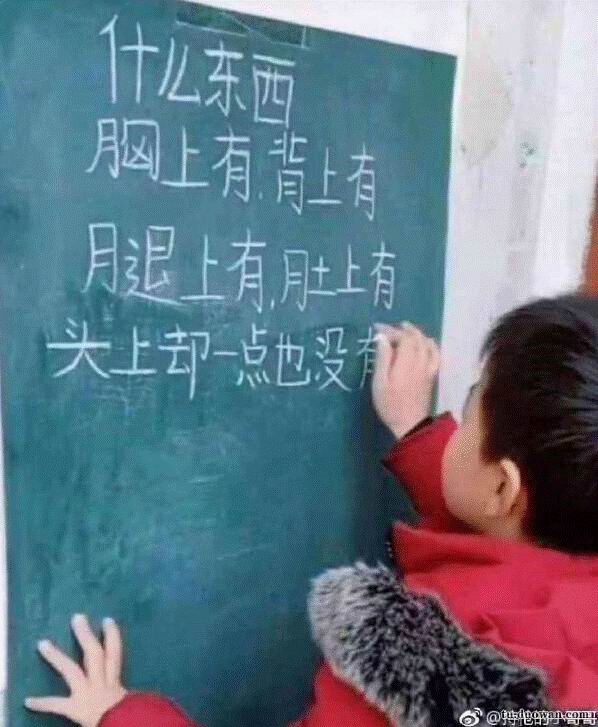 什么东西
胸上有.背上有
腿上有,肚上有
头上却一点也没有